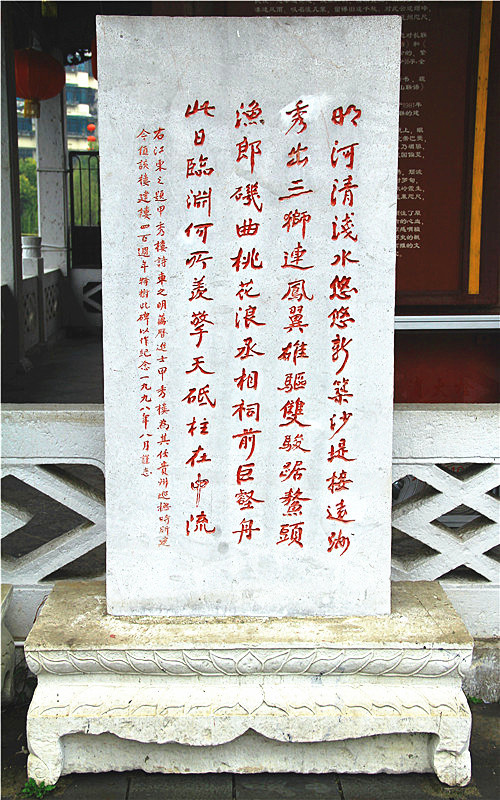 明河清淺水悠悠新築沙堤接遠洲
秀出三獅連鳳翼雄驅雙駿踞鰲頭
漁郎磯曲桃花浪丞相祠前巨壑舟
此日臨淵何所羨擎天砥柱在中流
右江東之題甲秀樓詩東之明萬曆進士甲秀樓為其任貴州巡撫時所建
今值該樓建樓四百週年特樹此碑以作紀念一九九八年八月謹志